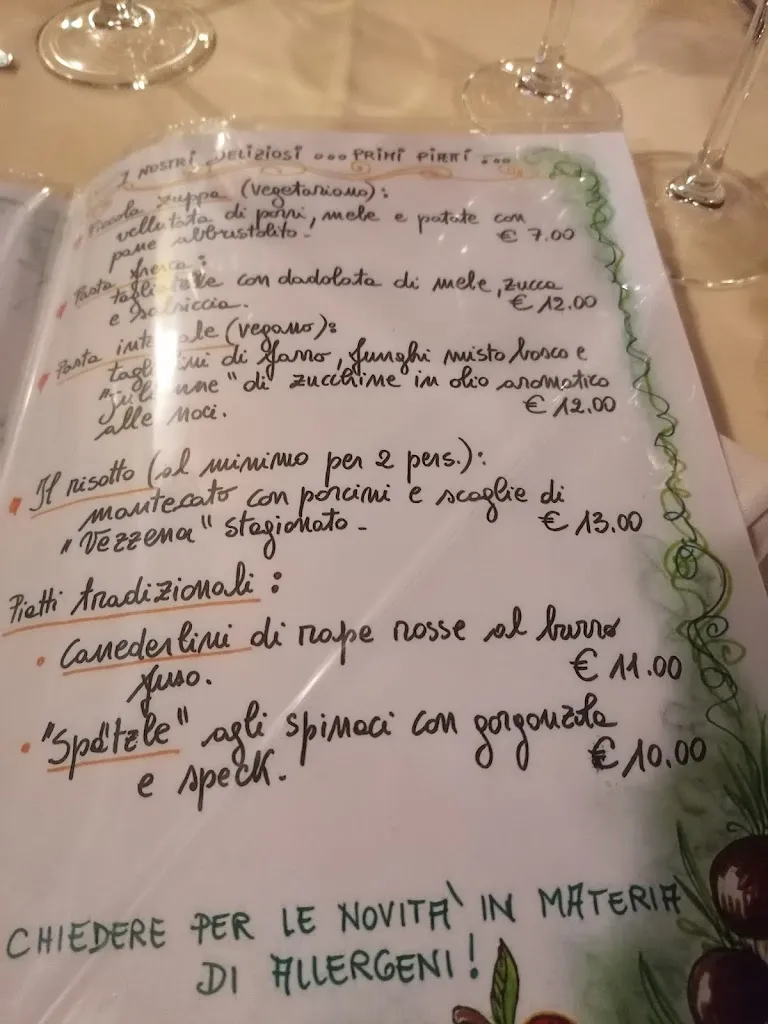 I NOSTRI DELIZIOSI ... PRIMI PIATTI ...
Piccola zuppa (vegetariano):
vellutata di porri, mele e patate con
pane abbrustolito.
€ 7.00
Pasta fresca:
tagliatelle con dadolata di mele, zucca
e salsiccia.
€ 12.00
Pasta integrale (vegano):
tagliolini di farro, funghi misto bosco e
"julienne" di zucchine in olio aromatico
alle noci.
€ 12.00
Il risotto (al minimo per 2 pers.):
mantecato con porcini e scaglie di
"Vezzena" stagionato -
€ 13.00
Piatti tradizionali:
• Canederlini di rape rosse al burro
fuso.
€ 11.00
• "Spätzle" agli spinaci con gorgonzola
e speck.
€ 10.00
CHIEDERE PER LE NOVITA' IN MATERIA
DI ALLERGENI!